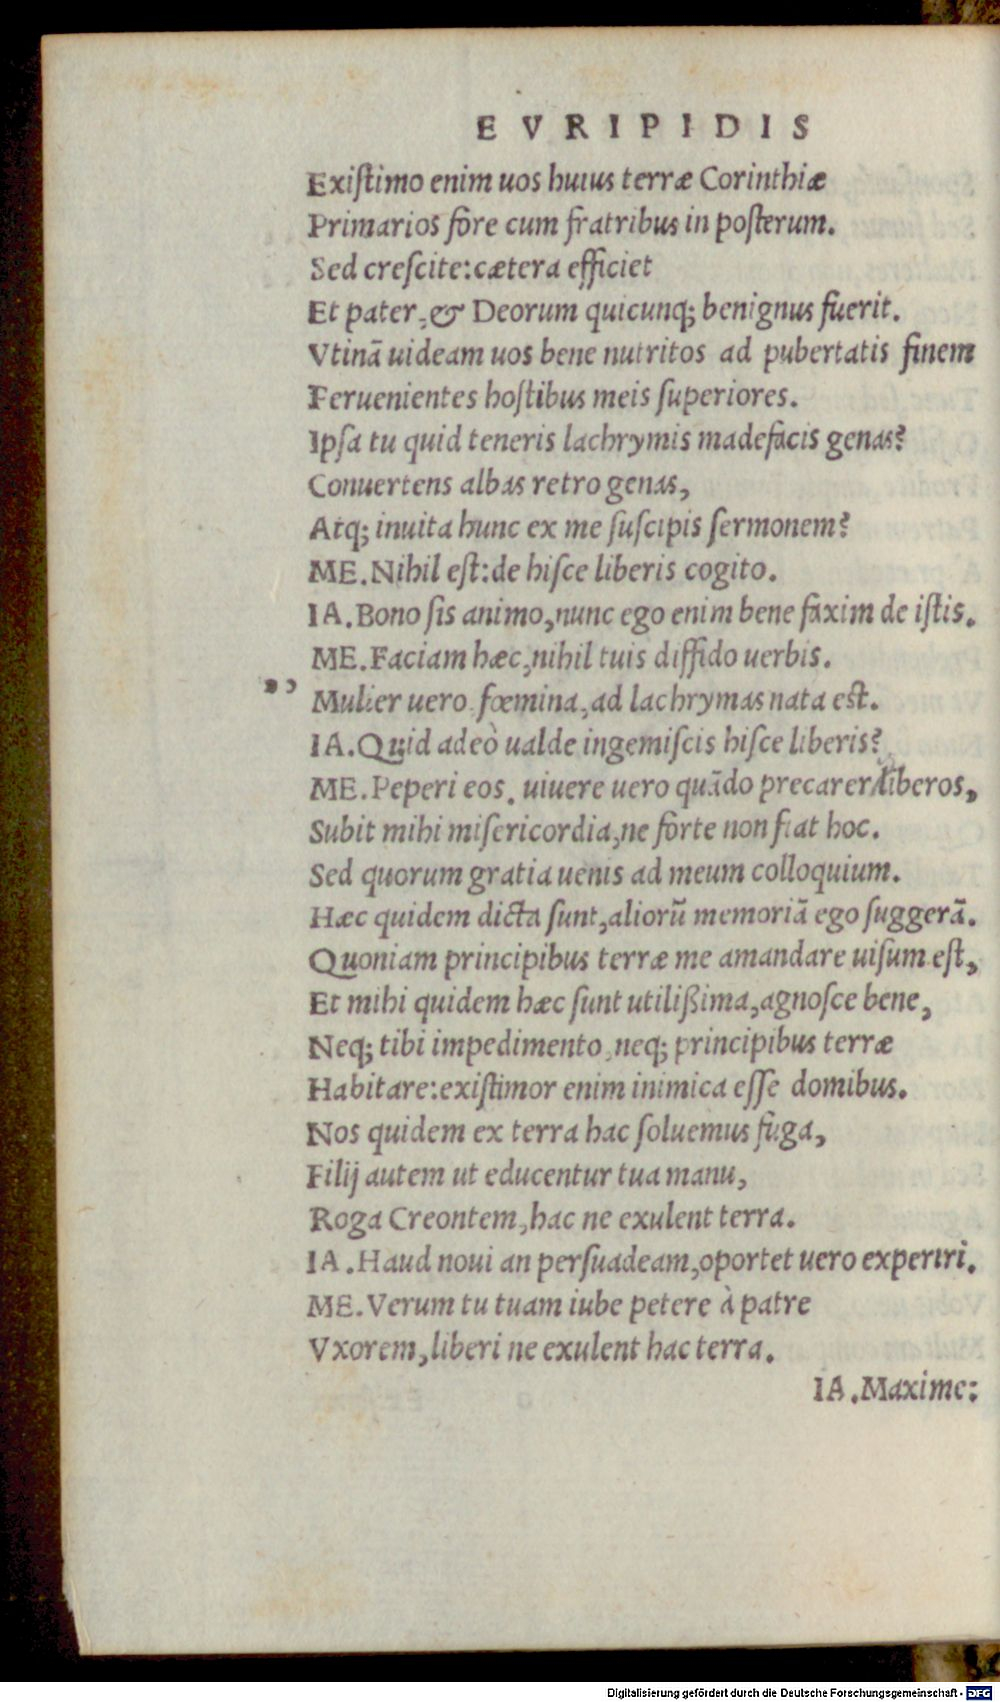 EVRIPIDIS
Existimo enim uos huius terræ Corinthiæ
Primarios fore cum fratribus in posterum.
Sed crescite: cætera efficiet
Et pater, & Deorum quicunq; benignus fuerit.
Vtinã uideam uos bene nutritos ad pubertatis finem
Peruenientes hostibus meis superiores.
Ipsa tu quid teneris lachrymis madefacis genas?
Conuertens albas retro genas,
Atq; inuita hunc ex me suscipis sermonem?
ME. Nihil est: de hisce liberis cogito.
IA. Bono sis animo, nunc ego enim bene faxim de istis.
ME. Faciam hæc, nihil tuis diffido uerbis.
,, Mulier uero fœmina, ad lachrymas nata est.
IA. Quid adeò ualde ingemiscis hisce liberis?
ME. Peperi eos. uiuere uero quãdo precarer liberos,
Subit mihi misericordia, ne forte non fiat hoc.
Sed quorum gratia uenis ad meum colloquium.
Hæc quidem dicta sunt, aliorũ memoriã ego suggerã.
Quoniam principibus terræ me amandare uisum est,
Et mihi quidem hæc sunt utilißima, agnosce bene,
Neq; tibi impedimento, neq; principibus terræ
Habitare: existimor enim inimica esse domibus.
Nos quidem ex terra hac soluemus fuga,
Filij autem ut educentur tua manu,
Roga Creontem, hac ne exulent terra.
IA. Haud noui an persuadeam, oportet uero experiri.
ME. Verum tu tuam iube petere à patre
Vxorem, liberi ne exulent hac terra.
IA. Maxime:
Digitalisierung gefördert durch die Deutsche Forschungsgemeinschaft - DFG